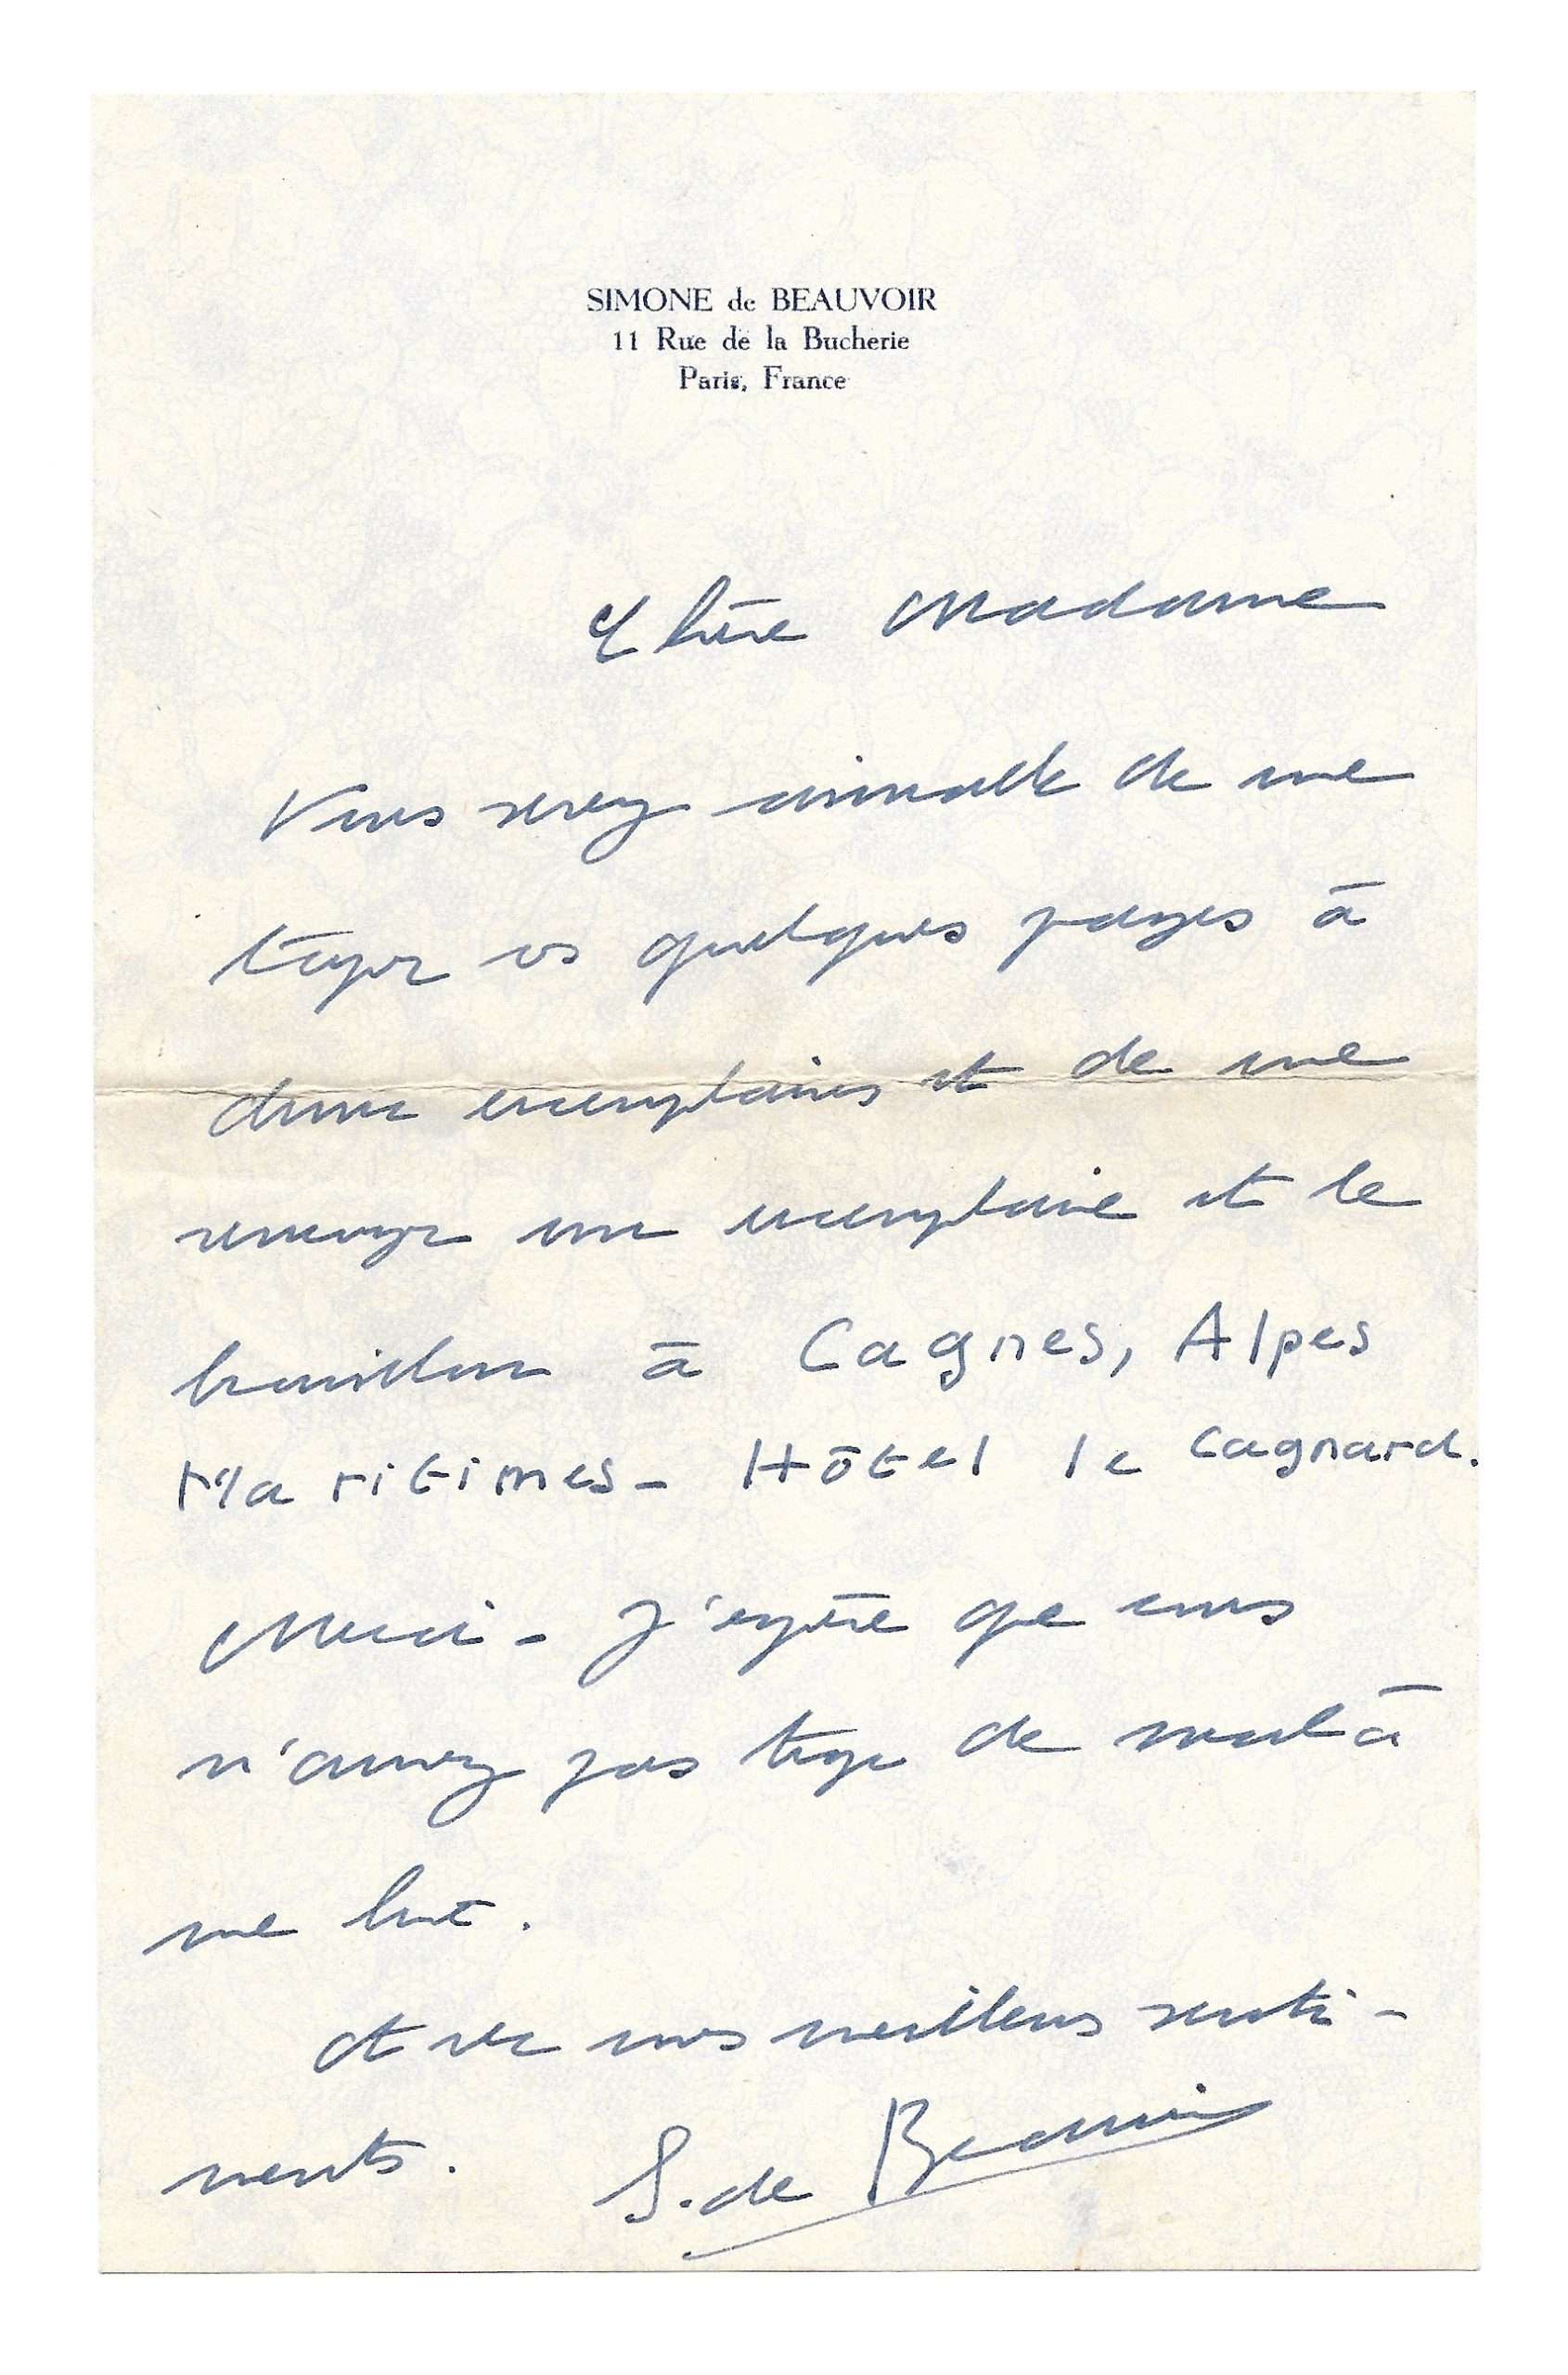 SIMONE de BEAUVOIR
11 Rue de la Bucherie
Paris, France
Chère Madame
Vous serez aimable de me
taper ces quelques pages à
deux exemplaires et de me
renvoyer un exemplaire et le
brouillon à Cagnes, Alpes
Maritimes - Hôtel le Cagnard.
Merci - J'espère que vous
n'aurez pas trop de mal à
me lire.
et avec mes meilleurs senti-
ments. S. de Beauvoir